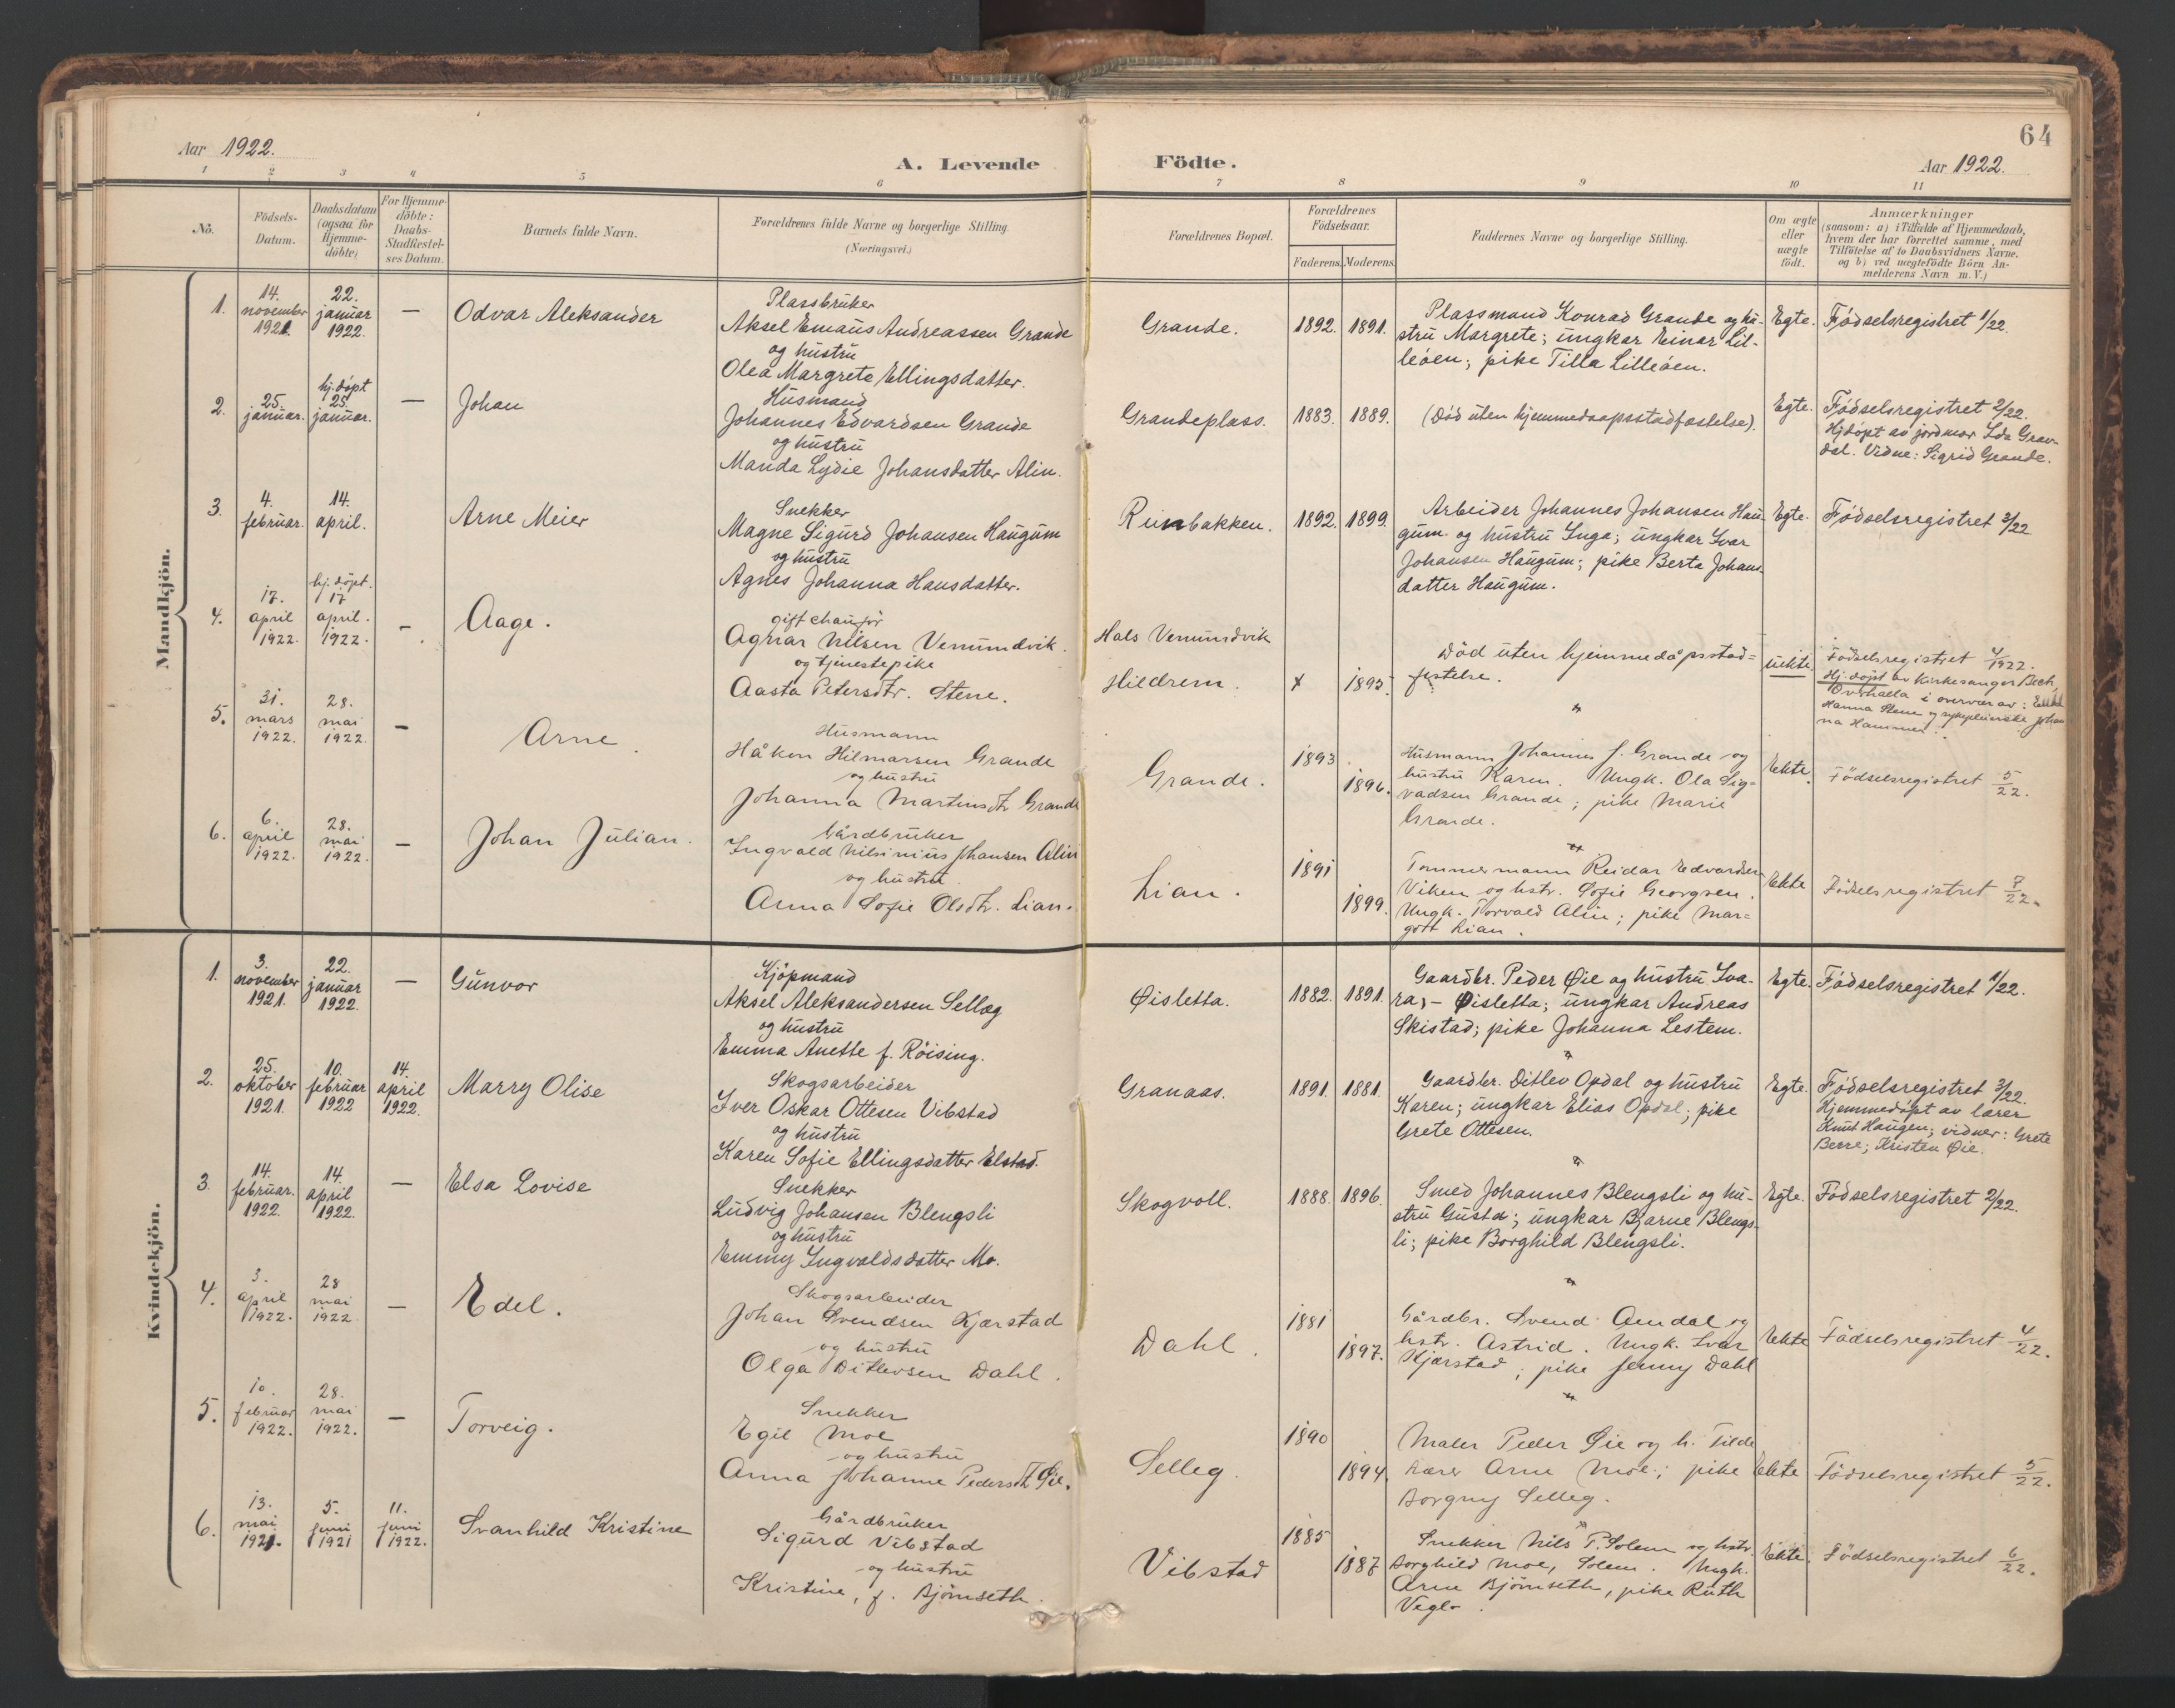 64
Aar 1922.
A. Levende Födte.
Aar 1922.
1 2 3 4 5 6 7 8 9 10 11
No.
Födsels-
Datum.
Daabsdatum
(ogsaa for
Hjemme-
döbte)
For Hjemme-
döbte:
Daabs-
Stadfæstel-
ses Datum.
Barnets fulde Navn.
Forældrenes fulde Navne og borgerlige Stilling.
(Næringsvei.)
Forældrenes Bopæl.
Forældrenes
Födselsaar.
Faderens. Moderens.
Faddernes Navne og borgerlige Stilling.
Om ægte
eller
uægte
födt.
Anmærkninger
(saasom: a) i Tilfælde af Hjemmedaab,
hvem der har forrettet samme, med
Tilföielse af to Daabsvidners Navne.
og b) ved uægtefödte Börn An-
melderens Navn m. V.)
Mandkjön.
1.
14.
november
1921.
22.
januar
1922.
—
Odvar Aleksander
Plassbruker
Aksel Emaus Andreassen Grande
og hustru
Olea Margrete Ellingsdatter.
Grande.
1892. 1891.
Plassmand Konrad Grande og hu-
stru Margrete; ungkar Einar Lil-
leöen; pike Tilla Lilleöen.
Egte.
Födselsregistret 1/22.
2.
25.
januar.
hj.döpt
25.
januar.
—
Johan
Husmand
Johannes Edvardsen Grande
og hustru
Manda Lydie Johansdatter Alin.
Grandeplass.
1883. 1889.
(Död uten hjemmedaapsstadfæstelse).
Egte.
Födselsregistret 2/22.
Hjdöpt av jordmor Ida Grav-
dal. Vidne: Sigrid Grande.
3.
4.
februar.
14.
april.
Arne Meier
Snekker
Magne Sigurd Johansen Haugum
og hustru
Agnes Johanna Hansdatter.
Reinbakken.
1892. 1899.
Arbeider Johannes Johansen Hau-
gum og hustru Inga; ungkar Ivar
Johansen Haugum; pike Berta Johans-
datter Haugum.
Egte.
Födselsregistret 3/22
4.
17.
april
1922.
hj. döpt.
17
april.
1922.
-
Aage.
gift chauför
Agnar Nilsen Vemundvik.
og tjenestepike
Aasta Petersdtr. Stene.
Hals Vemundvik
Hildrem.
x 1895.
Död uten hjemmedåpsstad=
festelse.
uekte
Födselsregistret 4/1922.
Hj. döpt av Kirkesanger Beck,
Overhalla i overvær av:
Hanna Stene og sykepleierske Johan
na Hammer.
5.
31.
mars
1922.
28.
mai
1922.
—
Arne.
Husmann
Håkon Hilmarsen Grande
og hustru
Johanna Martinsdtr Grande
Grande.
1893
1896.
Husmann Johannes J. Grande og
hustru Karen. Ungk. Ola Sig-
vadsen Grande; pike Marie
Grande.
Ekte.
Födselsregistret 5/22.
6.
6.
april
1922.
28.
mai
1922.
—
Johan Julian.
Gårdbruker
Ingvald Nilsinius Johansen Alin
og hustru
Anna Sofie Olsdtr. Lian.
Lian.
1891
1899.
Tømmermann Reidar Edvardsen
Viken og hstr. Sofie Georgsen.
Ungk. Torvald Alin; pike Mar=
gott Lian.
Ekte
Födselsregistret 7/22.
Kvindekjön.
1.
3.
november
1921.
22.
januar
1922.
—
Gunvor
Kjöpmand
Aksel Aleksandersen Selleg
og hustru
Emma Anette f. Röising.
Øisletta.
1882. 1891.
Gaardbr. Peder Øie og hustru Iva-
ra, - Øisletta; ungkar Andreas
Skistad; pike Johanna Lestem.
Egte.
Födselsregistret 1/22.
2.
25.
oktober
1921.
10.
februar
1922
14.
april
1922.
Marry Olise
Skogsarbeider
Iver Oskar Ottesen Vibstad
og hustru
Karen Sofie Ellingsdatter Elstad.
Granaas.
1891. 1881.
Gaardbr. Ditlev Opdal og hustru
Karen; ungkar Elias Opdal; pike
Grete Ottesen.
Egte.
Födselsregistret 3/22.
Hjemmedöpt av lærer
Knut Haugen; vidner: Grete
Berre; Kristen Øie.
3.
14.
februar.
1922.
14.
april
1922.
—
Elsa Lovise
Snekker
Ludvig Johansen Blengsli
og hustru
Emmy Ingvaldsdatter Mo.
Skogvoll.
1888. 1896.
Smed Johannes Blengsli og hu-
stru Gusta; ungkar Bjarne Blengs-
li; pike Borghild Blengsli.
Egte.
Födselsregistret 2/22.
4.
3.
april
1922.
28
mai
1922
—
Edel.
Skogsarbeider
Johan Svendsen Kjærstad
og hustru
Olga Ditlevsen Dahl.
Dahl.
1881
1897.
Gårdbr. Svend Amdal og
hstr. Astrid. Ungk. Ivar
Kjærstad; pike Jenny Dahl
Ekte
Födselsregistret 4/22.
5.
10.
februar
1922.
28.
mai
1922.
—
Torveig.
Snekker
Egil Moe
og hustru
Anna Johanne Pedersdt Øie.
Selleg.
1890
1894.
Maler Peder Øie og h. Tilde
Lærer Arne Moe; pike
Borgny Selleg.
Ekte
Födselsregistret 5/22.
6.
13.
mai
1921.
5.
juni
1921
11.
juni
1922.
Svanhild Kristine
Gårdbruker
Sigurd Vibstad
og hustru
Kristine, f. Bjömseth.
Vibstad
1885
1887
Snekker Nils P. Solem og hstr.
Borghild Moe, Solem. Ungk.
Arne Bjömseth, pike Ruth
Veglo.
Ekte.
Födselsregistret 6/22.